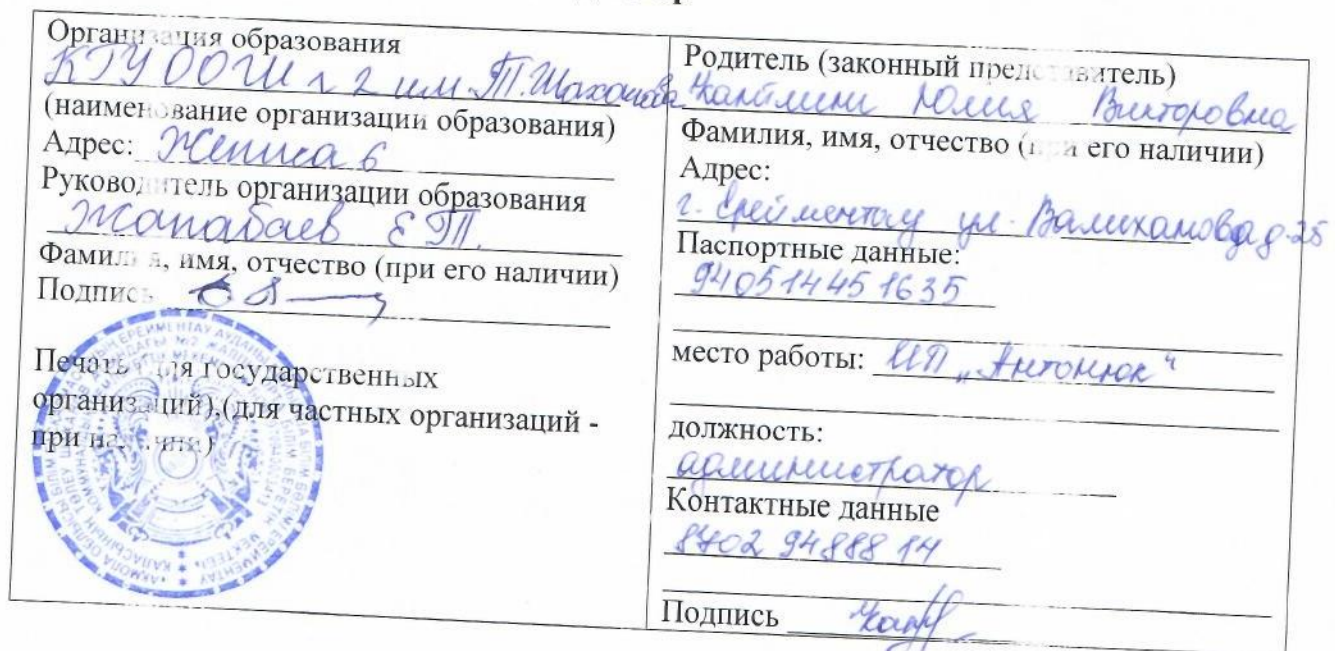 Организация образования
КГУ ООШ № 2 им. Т. Шаханова
(наименование организации образования)
Адрес: Женіса 6
Руководитель организации образования
Жанабаев Е.Т.
Фамилия, имя, отчество (при его наличии)
Подпись
Печать (для государственных
организаций),(для частных организаций -
при наличии)
Родитель (законный представитель)
Юлия Викторовна
Фамилия, имя, отчество (при его наличии)
Адрес:
г. Ерейментау ул. Валиханова д. 25
Паспортные данные:
940514451635
место работы: ИП "Антонюк"
должность:
администратор
Контактные данные
8702 94888 14
Подпись